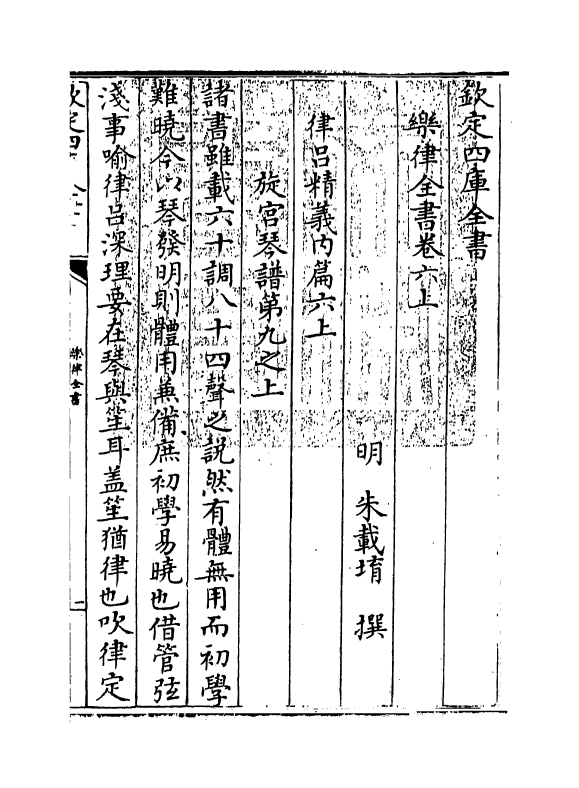 欽定四庫全書
樂律全書卷六上
明 朱載堉 撰
律呂精義內篇六上
旋宫琴譜第九之上
諸書雖載六十調八十四聲之說然有體無用而初學
難曉今以琴發明則體用兼備庶初學易曉也借管弦
淺事喻律呂深理要在琴與笙耳盖笙猶律也吹律定
欽定四
樂律全書